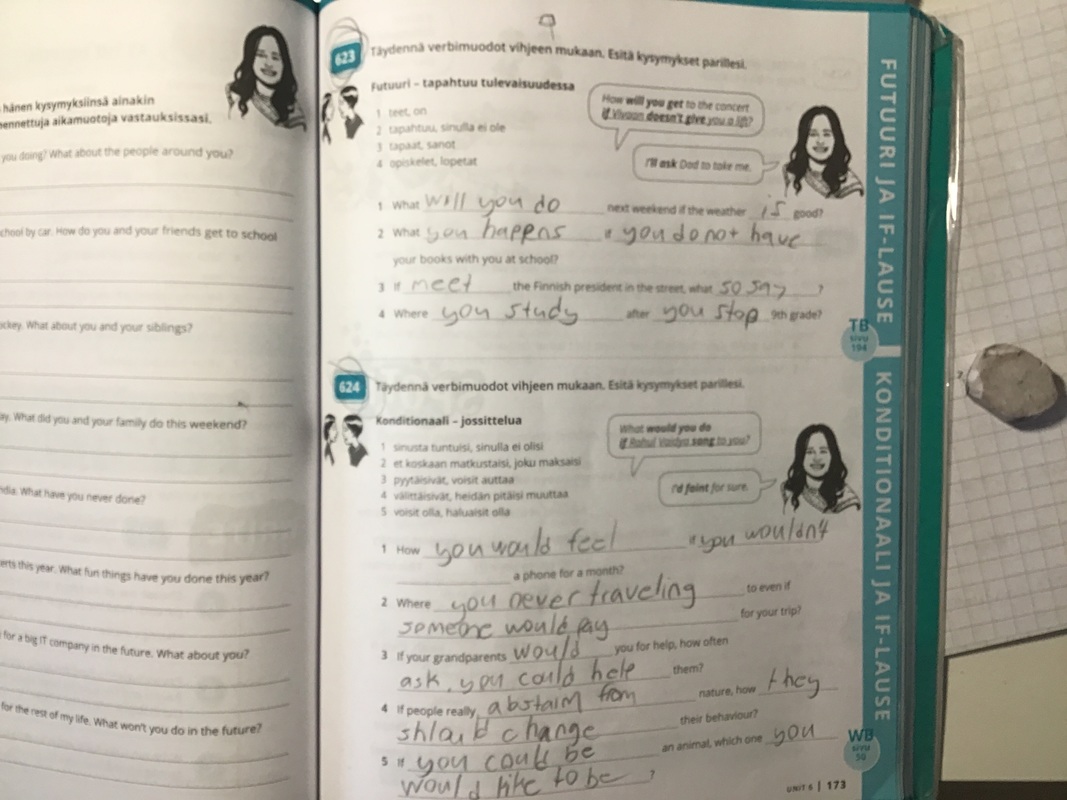 hänen kysymyksiinsä ainakin
ennettuja aikamuotoja vastauksissasi.
you doing? What about the people around you?
chool by car. How do you and your friends get to school
ockey. What about you and your siblings?
ay. What did you and your family do this weekend?
ndia. What have you never done?
erts this year. What fun things have you done this year?
for a big IT company in the future. What about you?
for the rest of my life. What won't you do in the future?
623 Täydennä verbimuodot vihjeen mukaan. Esitä kysymykset parillesi.
Futuuri – tapahtuu tulevaisuudessa
1 teet, on
2 tapahtuu, sinulla ei ole
3 tapaat, sanot
4 opiskelet, lopetat
How will you get to the concert
if Vivaan doesn't give you a lift?
I'll ask Dad to take me.
1 What will you do next weekend if the weather is good?
2 What you happens if you do not have
your books with you at school?
3 If meet the Finnish president in the street, what so say ?
4 Where you study after you stop 9th grade?
TB
sivu
194
624 Täydennä verbimuodot vihjeen mukaan. Esitä kysymykset parillesi.
Konditionaali – jossittelua
1 sinusta tuntuisi, sinulla ei olisi
2 et koskaan matkustaisi, joku maksaisi
3 pyytäisivät, voisit auttaa
4 välittäisivät, heidän pitäisi muuttaa
5 voisit olla, haluaisit olla
What would you do
if Rahul Vaidya sang to you?
I'd faint for sure.
1 How you would feel if you wouldn't
a phone for a month?
2 Where you never traveling to even if
someone would pay for your trip?
3 If your grandparents would you for help, how often
ask, you could help them?
4 If people really abstaim from nature, how they
shlould change their behaviour?
5 If you could be an animal, which one you
would like to be ?
WB
sivu
50
UNIT 6 | 173
FUTUURI JA IF-LAUSE
KONDITIONAALI JA IF-LAUSE